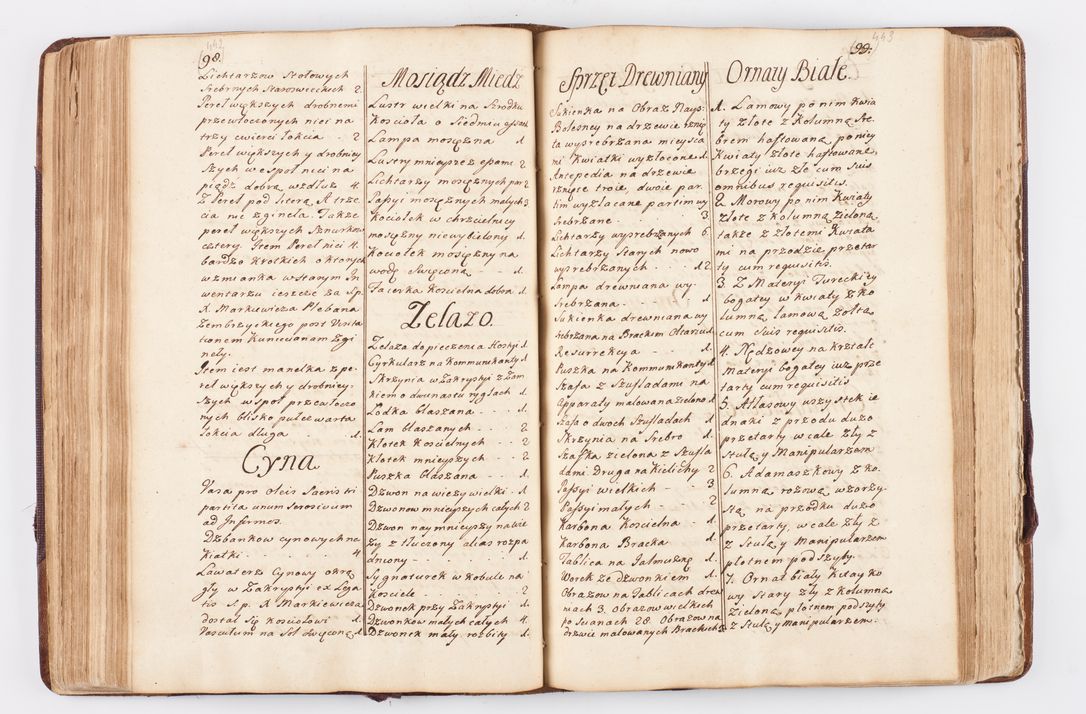 442
(98.
Lichtarzow Stołowych
Srebrnych Staroswieckich 2.
Pereł większych drobnemi
przewłoczonych nici na
trzy cwierci łokcia - 2
Pereł większych y drobniey
szych wespoł nici na
piądź dobrą wzdłuż 4.
Z Pereł pod literą A trze
cia nić zginęła. Także
pereł większych Sznurkow
cztery. Item Pereł nici 4.
bardzo krotkich o ktorych
wzmianka w starym In
wentarzu ieszcze za Sp.
X. Markiewicza Plebana
Zembrzyckiego post Visita
tionem Kunicianam Zgi
nęły.
Item iest manelka z pe
reł większych y drobniey
szych wespoł przewłoczo
nych blisko puł cwarta
łokcia długa 1.
Cyna
Vasa pro Oleis Sacris tri
partita unum Serosivum
ad Infirmos.
Dzbankow cynowych na
Kiatki 4
Lawaterz Cynowy okrą
gły w Zakrystyi ex Lega
tis S. p. X Markiewicza
dostał się kosciołowi 1.
Vasculum na Sol Swięconą 1.
Mosiądz Miedz
Lustr wielki na Srodku
Kosciola o Siedmiu
Lampa mosięzna 1.
Lustry mnieysze z epami 2
Lichtarzy mosięznych par 2
Pasyi mosięznych małych 3
Kociołek w chrzcielnicy
mosięzny niewybielony 1.
Kociołek mosięzny na
wodę Swięconą 1.
Facerka koscielna dobra 1.
Zelazo.
Zelaza do pieczenia Hostyi 1
Cyrkularz na Kommunikanty 1
Skrzynia w Zakrystyi z Zam
kiem o dwunastu ryglach 1.
Łodka blaszana 1.
Lam blaszanych 2
Kłotek koscielnych 2
Kłotek mnieyszych 2.
Puszka blaszana 1.
Dzwon na wiezy wielki 1
Dzwonow mnieyszych całych 2
Dzwon naymnieyszy na wie
zy z tłuczony alias rozpa
dniony 1.
Sygnaturek w kobule na
Kosciele 2
Dzwonek przy Zakrystyi 1
Dzwonkow małych całych 4.
Dzwonek mały rozbity 1.
443
(99.
Sprzęt Drewniany
Sukienka na Obraz Nays.
Bolesney na drzewie rznię
ta wysrebrzana mieysca
mi Kwiatki wyzłocone 1.
Antepedia na drzewie
rznięte troie, dwoie par
tim wyzłacane partim wy
Srebrzane 3
Lichtarzy wysrebrzanych 6.
Lichtarzy Starych nowo
wysrebrzanych 12
Lampa drewniana wy
Srebrzana 1
Sukienka drewniana wy
srebrzana na Brackim Ołtarzu 1
Resurrekcya 1.
Puszka na Kommunikanty 1
Szafa z Szufladami na
Apparaty malowana zielono 1
Szafa o dwoch Szufladach 1
Skrzynia na Srebro 1.
Szafka zielona z Szufla
dami Druga na Kielichy 2
Passyi wielkich 3
Passyi małych 2
Karbona Koscielna 1.
Karbona Bracka 1.
Tablica na Jałmuznę 1.
Worek ze dzwonkiem 1.
Obrazow na Tablicach drew
nach 3. Obrazow wielkich
po Scianach 28. Obrazow na
drzwie malowanych Brackich 2
Ornaty Białe.
1. Lamowy po nim kwia
ty złote z kolumną Sre
brem haftowaną po niey
kwiaty złote haftowane
brzegi iuz złe cum Suis
omnibus requisitis.
2. Morowy po nim Kwiaty
złote z kolumną zieloną
także z złotemi Kwiata
mi na przodzie przetar
ty cum requisitis.
3. Z Materyi Tureckiey
bogatey w kwiaty z ko
lumną lamową żołtą
cum suis requisitis.
4. Nędzowey na kształt
Materyi bogatey iuz prze
tarty cum requisitis
5. Atłasowy wszystek ie
dnaki z przodu duzo
przetarty wcale zły z
Stułą y Manipularzem
6. Adamaszkowy z ko
lumną rozową wzorzy
stą na przodku duzo
przetarty, wcale zły z
z Stułą y Manipularzem
płotnem podszyty.
7. Ornat biały kitayko
wy Stary zły z kolumną
Zieloną płotnem podszyty
z Stułą y Manipularzem.